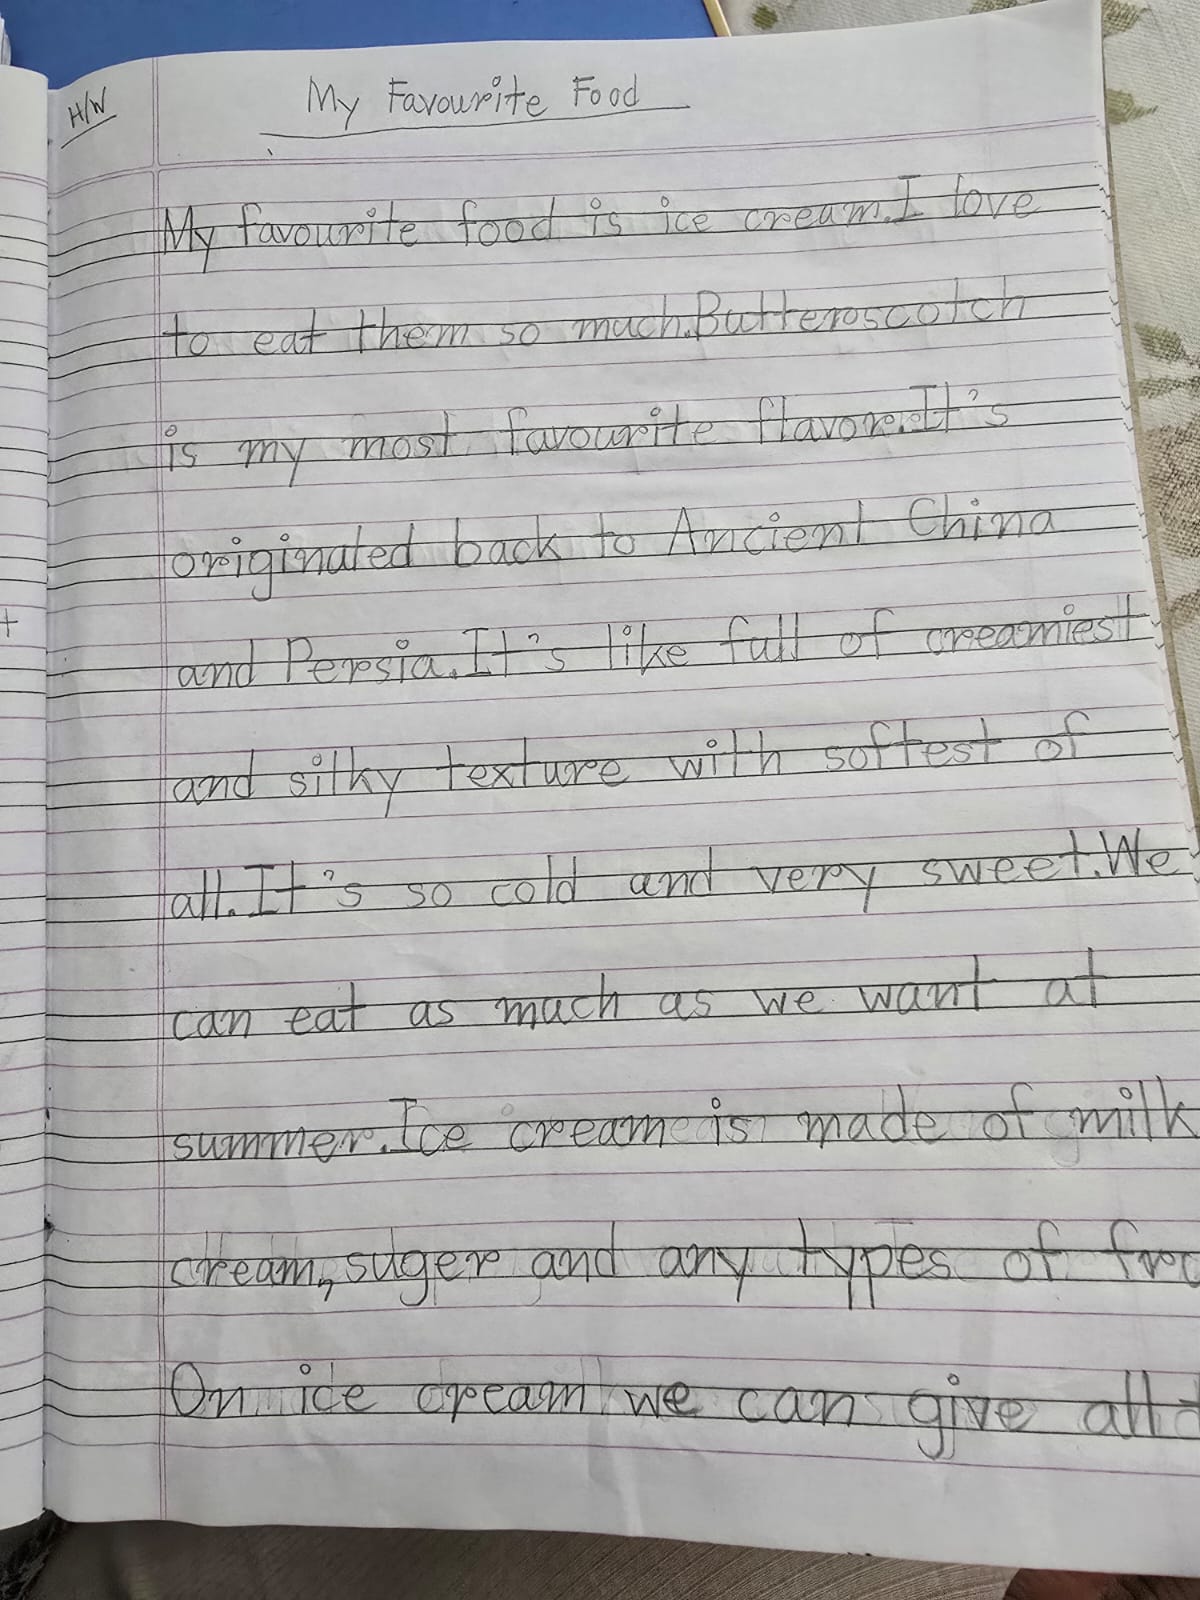 H/W
My Favourite Food
My favourite food is ice cream.I love
to eat them so much.Butteroscotch
is my most favourite flavore.It's
originated back to Ancient China
and Persia.It's like full of creamiest
and silky texture with softest of
all.It's so cold and very sweet.We
can eat as much as we want at
summer.Ice cream is made of milk
cream,suger and any types of
On ice cream we can give all